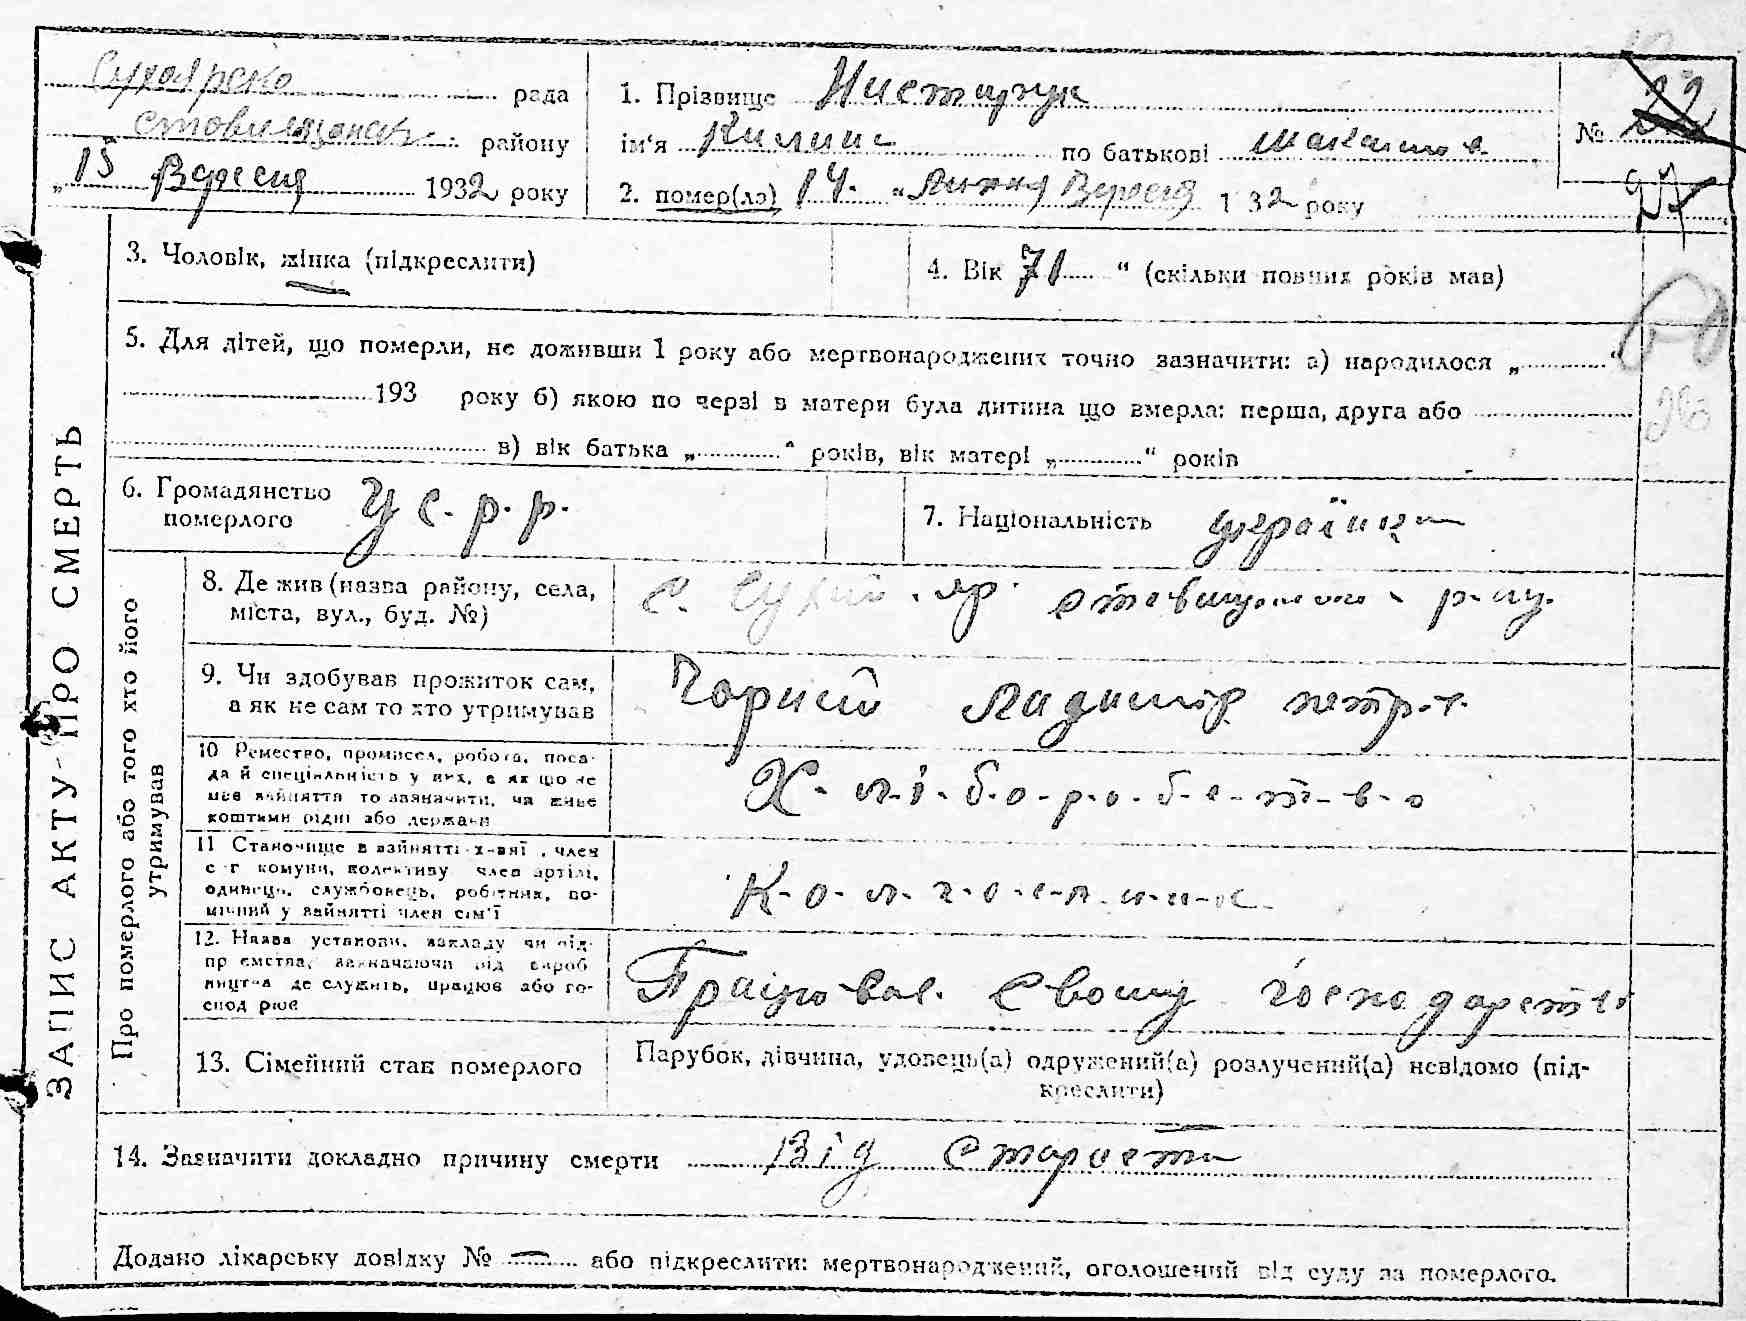 рада
району
„15 Вересня 1932 року
1. Прізвище
ім'я Килина по батькові
2. помер(лэ) 14. „ Вересня 1 32 року
№ 22
97
3. Чоловік, жінка (підкреслити)
4. Вік 71 “ (скільки повних років мав)
5. Для дітей, що померли, не доживши 1 року або мертвонароджених точно зазначити: а) народилося „ “
193 року б) якою по черзі в матери була дитина що вмерла: перша, друга або
в) вік батька „ “ років, вік матері „ “ років
6. Громадянство
померлого
У С. р. р.
7. Національність українка
ЗАПИС АКТУ ПРО СМЕРТЬ
Про померлого або того хто його
утримував
8. Де жив (назва району, села,
міста, вул., буд. №)
с. Сухий яр р-ну.
9. Чи здобував прожиток сам,
а як не сам то хто утримував
Чорний
10 Ремество, промисел, робота, поса-
да й спеціяльність у них, а як що не
мав зайняття то зазначити, чи живе
коштами рідні або держави
Х-л-і-б-о-р-о-б-с-т-в-о
11 Становище в зайнятті х-вяї , член
с г комуни, колективу член артілі,
одинець, службовець, робітник, по-
мічний у зайнятті член сім'ї
К-о-л-г-о-с-п-н-и-к
12. Назва установи, закладу чи під-
пр ємства, зазначаючи від вироб
ництва де служить, працює або го-
спод рює
Працював. Свому господарстві
13. Сімейний стан померлого
Парубок, дівчина, удовець(а) одружений(а) розлучений(а) невідомо (під-
креслити)
14. Зазначити докладно причину смерти Від старости
Додано лікарську довідку № — або підкреслити: мертвонароджений, оголошений від суду за померлого.